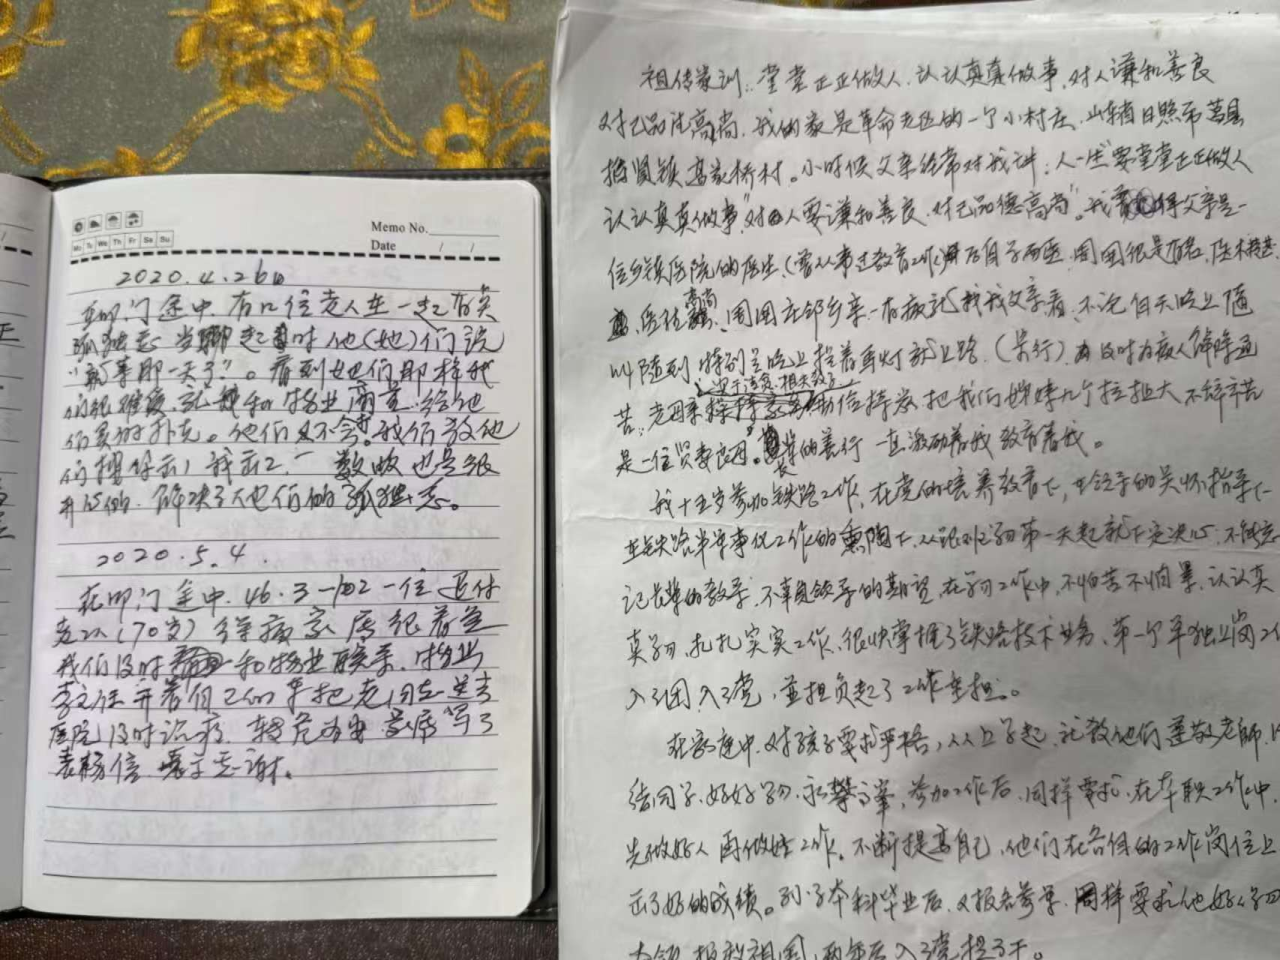 Memo No.
Mo Tu We Th Fr Sa Su
Date / /
2020.4.26
在叩门途中.有几位老人在一起有关
孤独感.当聊起时他(她)们说
"就等那一天了"。看到她们那样我
们很难受.就和物业商量.给他
们买的扑克。他们又不会.我们教他
们
的.解决了他们的孤独感。
2020.5.4
在叩门途中.46.3-102一位
老人(70岁)病家属很着急
我们及时和物业联系.物业
李主任开着自己的车把老同志送去
医院及时治疗.转危为安.家属写了
表扬信.表示感谢。
祖传家训:堂堂正正做人.认认真真做事.对人谦和善良
对己品德高尚.我的家是革命老区的一个小村庄.山东省日照市莒县
招贤镇高家桥村。小时候父亲经常对我讲:人一生"要堂堂正正做人
认认真真做事"对人要谦和善良.对己品德高尚"。我父亲是一
位乡镇医院的医生(曾从事过教育工作)后自学而医.周围很是有名.医术
医德高尚.周围庄邻乡亲一有病就找我父亲看.不论白天晚上随
叫随到.特别是晚上拎着马灯就上路.(步行)及时为病人解除
苦.老母亲勤俭持家把我们姊妹几个拉扯大.不辞辛苦
是一位贤妻良母。的善行一直激励着我教育着我。
我十五岁参加铁路工作.在党的培养教育下.在领导的关怀指导下
在铁路半军事化工作的熏陶下.从跟班学习第一天起就下定决心.不
记长辈的教导.不辜负领导的期望.在学习工作中.不怕苦不怕累.认认真
真学习.扎扎实实工作.很快掌握了铁路技术业务.第一个单独业岗
入了团入了党.并担负起了工作重担。
在家庭中.对孩子要求严格,从上学起.就教他们尊敬老师.
结同学.好好学习.永攀高峰.参加工作后.同样要求.在本职工作中.
先做好人再做好工作。不断提高自己.他们在各自的工作岗位上
出了好的成绩。孙子本科毕业后.又报名参军.同样要求他好好学习
本领.报效祖国.两年后入了党提了干。